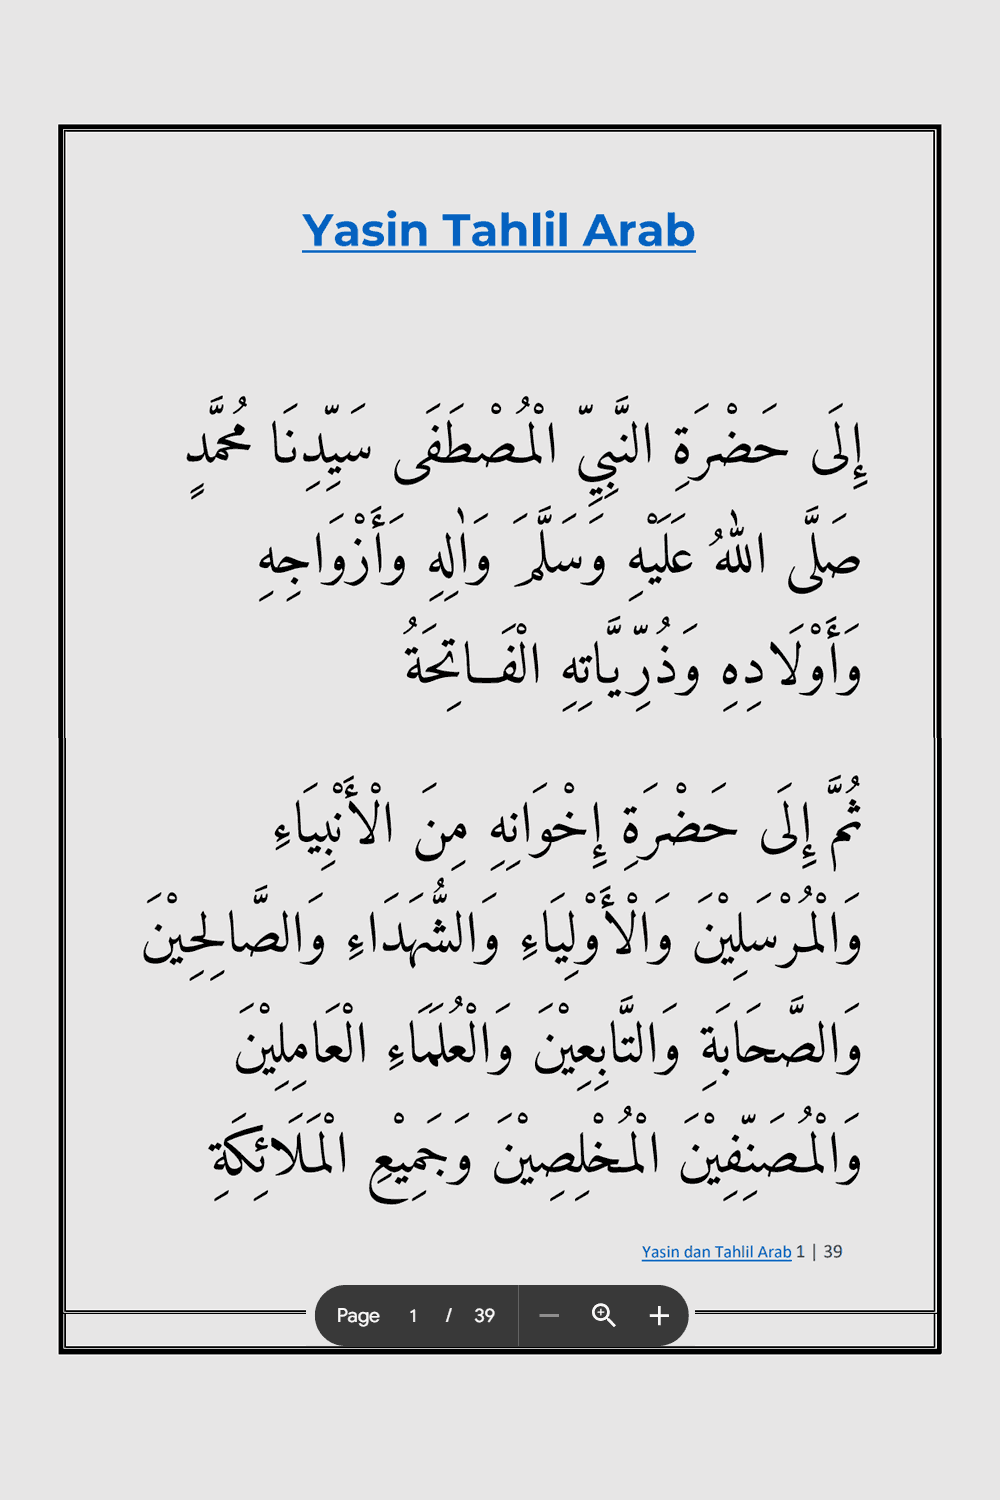 Yasin Tahlil Arab
إِلَى حَضْرَةِ النَّبِيِّ الْمُصْطَفَى سَيِّدِنَا مُحَمَّدٍ
صَلَّى اللهُ عَلَيْهِ وَسَلَّمَ وَاٰلِهِ وَأَزْوَاجِهِ
وَأَوْلَادِهِ وَذُرِّيَّاتِهِ الْفَـاتِحَةُ
ثُمَّ إِلَى حَضْرَةِ إِخْوَانِهِ مِنَ الْأَنْبِيَاءِ
وَالْمُرْسَلِيْنَ وَالْأَوْلِيَاءِ وَالشُّهَدَاءِ وَالصَّالِحِيْنَ
وَالصَّحَابَةِ وَالتَّابِعِيْنَ وَالْعُلَمَاءِ الْعَامِلِيْنَ
وَالْمُصَنِّفِيْنَ الْمُخْلِصِيْنَ وَجَمِيْعِ الْمَلَائِكَةِ
Yasin dan Tahlil Arab 1 | 39
Page 1 / 39